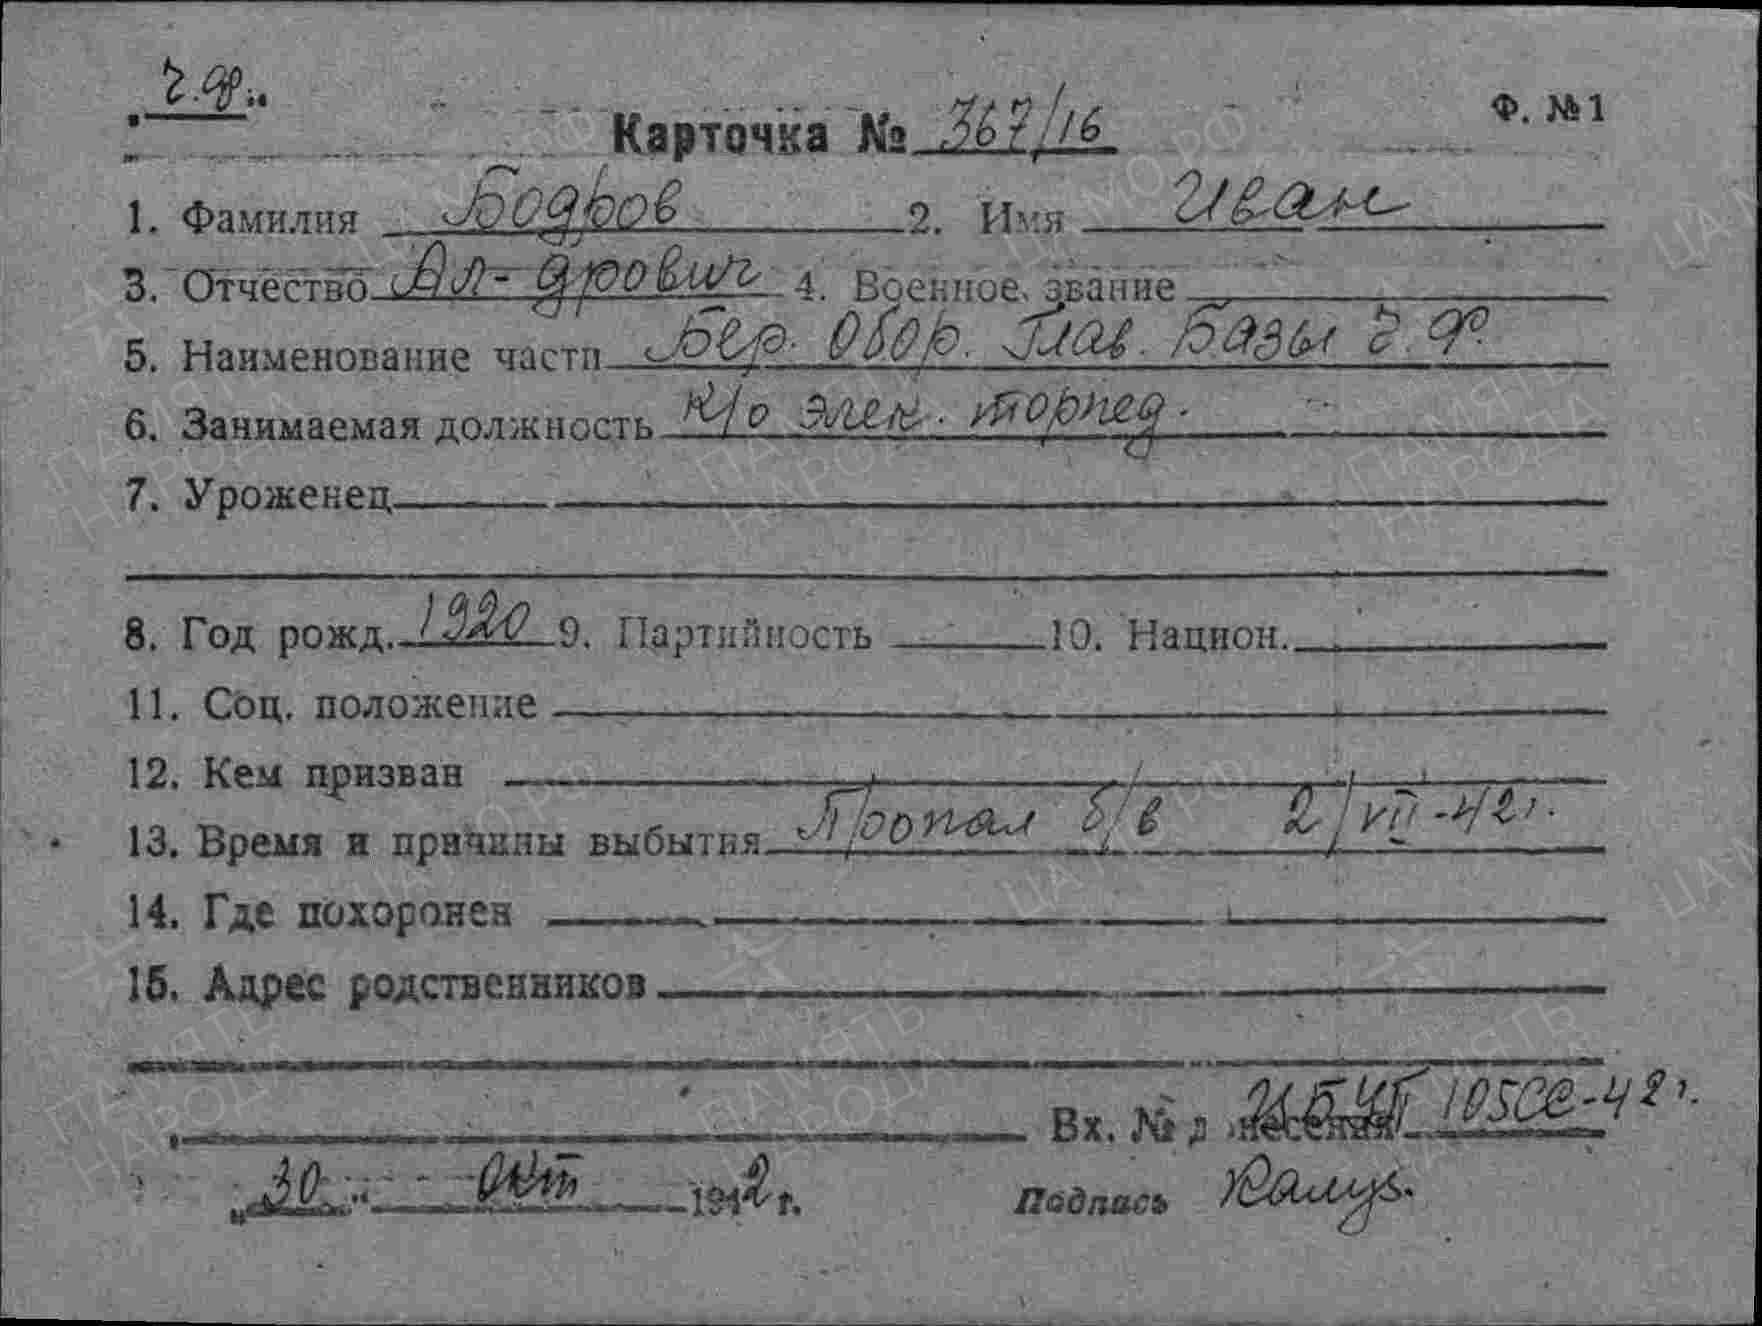 Ч.Ф.
Ф. №1
Карточка № 367/16
1. Фамилия Бодров 2. Имя Иван
3. Отчество Ал-дрович 4. Военное звание
5. Наименование части Бер. Обор. Глав. Базы Ч.Ф.
6. Занимаемая должность К/о элек. торпед.
7. Уроженец
8. Год рожд. 1920 9. Партийность 10. Национ.
11. Соц. положение
12. Кем призван
13. Время и причины выбытия Пропал б/в 2/VII-42г.
14. Где похоронен
15. Адрес родственников
Вх. № донесения 105сс-42г.
"30" Окт 1942 г. Подпись